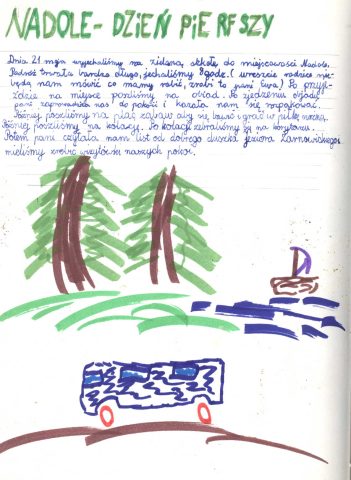 NADOLE - DZIEŃ PIERFSZY
Dnia 21 mja wyjechaliśmy na zieloną szkołę do miejscowości Nadole.
Podróż trwała bardzo długo, jechaliśmy 8 godz. ( wreszcie rodzice nie
będą nam mówić co mamy robić, zrobi to pani Ewa) Po przyje-
ździe na miejsce poszliśmy na obiad. Po zjedzeniu obiadu
pani zaprowadziła nas do pokoi i kazała nam się rozpakować.
Później poszliśmy na plac zabaw aby się bawić i grać w piłkę nożną.
Później poszliśmy na kolację. Po kolacji zebraliśmy się na korytarzu.
Potem pani czytała nam list od dobrego duszka jeziora Żarnowickiego
mieliśmy zrobić wizytówki naszych pokoi.